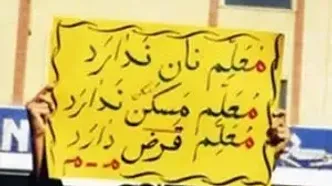 معلم نان ندارد
معلم مسکن ندارد
معلم قرض دارد
م-م
N